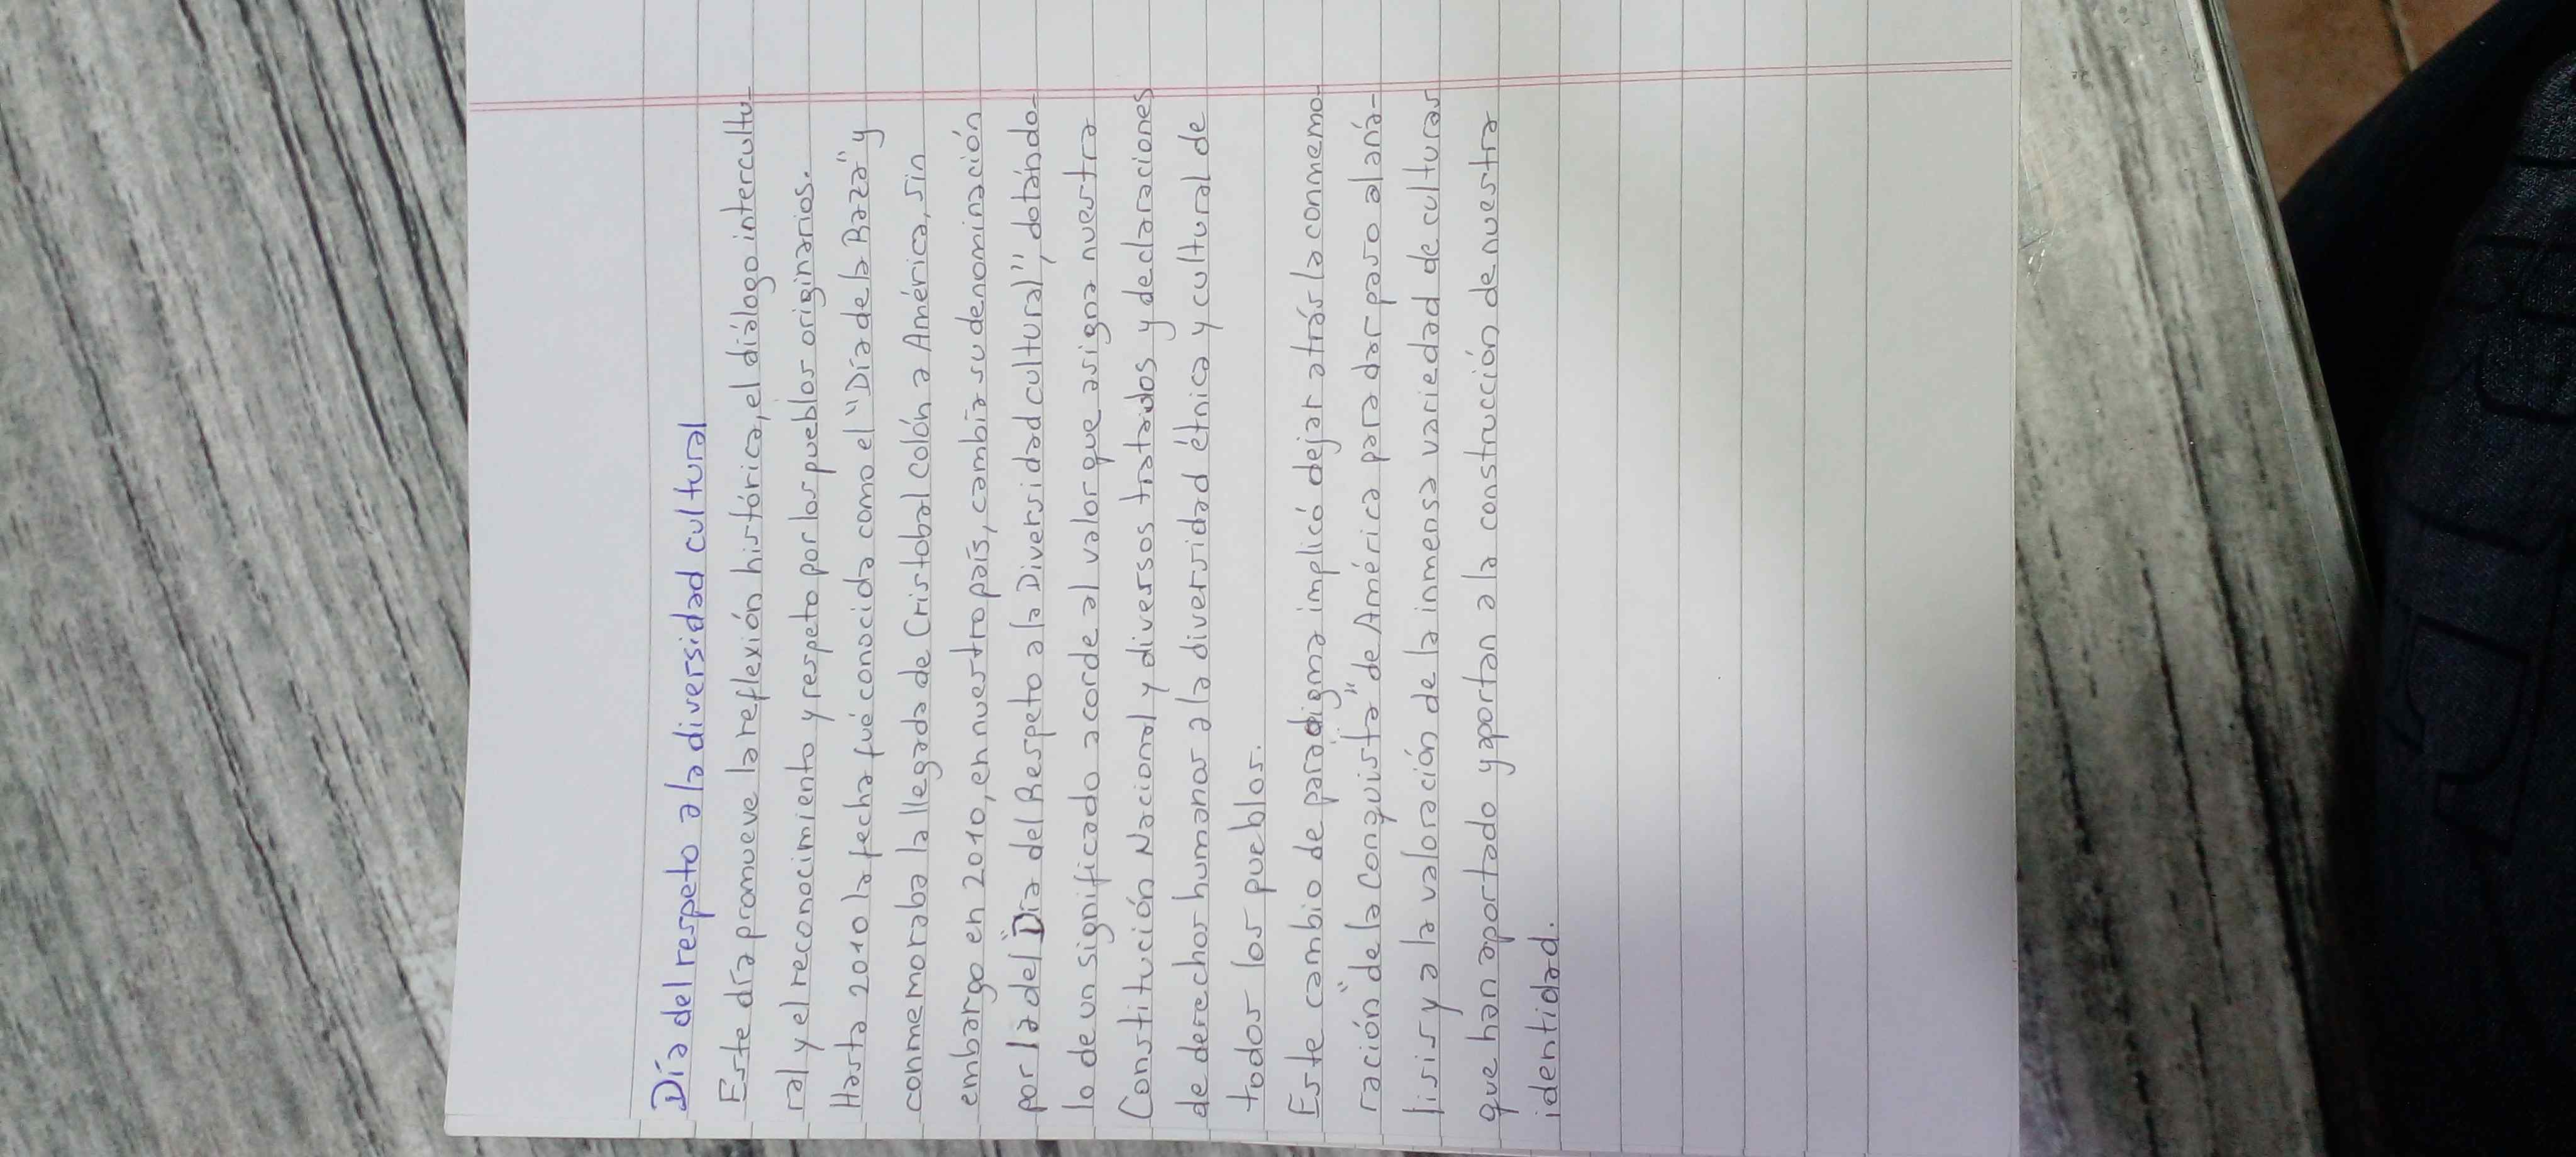 Día del respeto a la diversidad cultural
Este día promueve la reflexión histórica, el diálogo intercultu-
ral y el reconocimiento y respeto por los pueblos originarios.
Hasta 2010 la fecha fué conocida como el "Día de la Raza" y
conmemoraba la llegada de Cristobal Colón a América, sin
embargo en 2010, en nuestro país, cambia su denominación
por la del "Día del Respeto a la Diversidad cultural", dotándo-
lo de un significado acorde al valor que asigna nuestra
Constitución Nacional y diversos tratados y declaraciones
de derechos humanos a la diversidad étnica y cultural de
todos los pueblos.
Este cambio de paradigma implicó dejar atrás la conmemo-
ración "de la Conquista" de América para dar paso al aná-
lisis y a la valoración de la inmensa variedad de culturas
que han aportado y aportan a la construcción de nuestra
identidad.